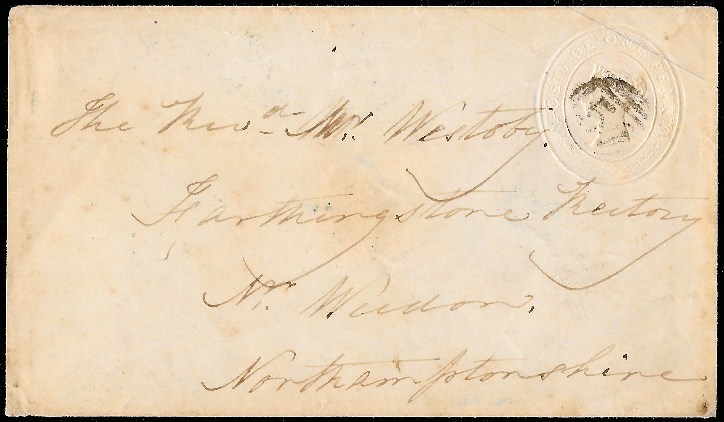 POSTAGE ONE
The Revd. Mr. Westoby
Farthingstone Rectory
Nr. Weedon,
Northamptonshire